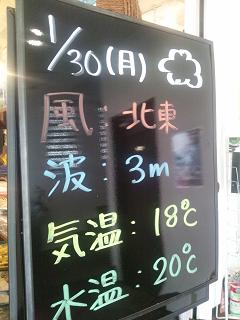 1/30(月)
風:北東
波:3m
気温:18℃
水温:20℃